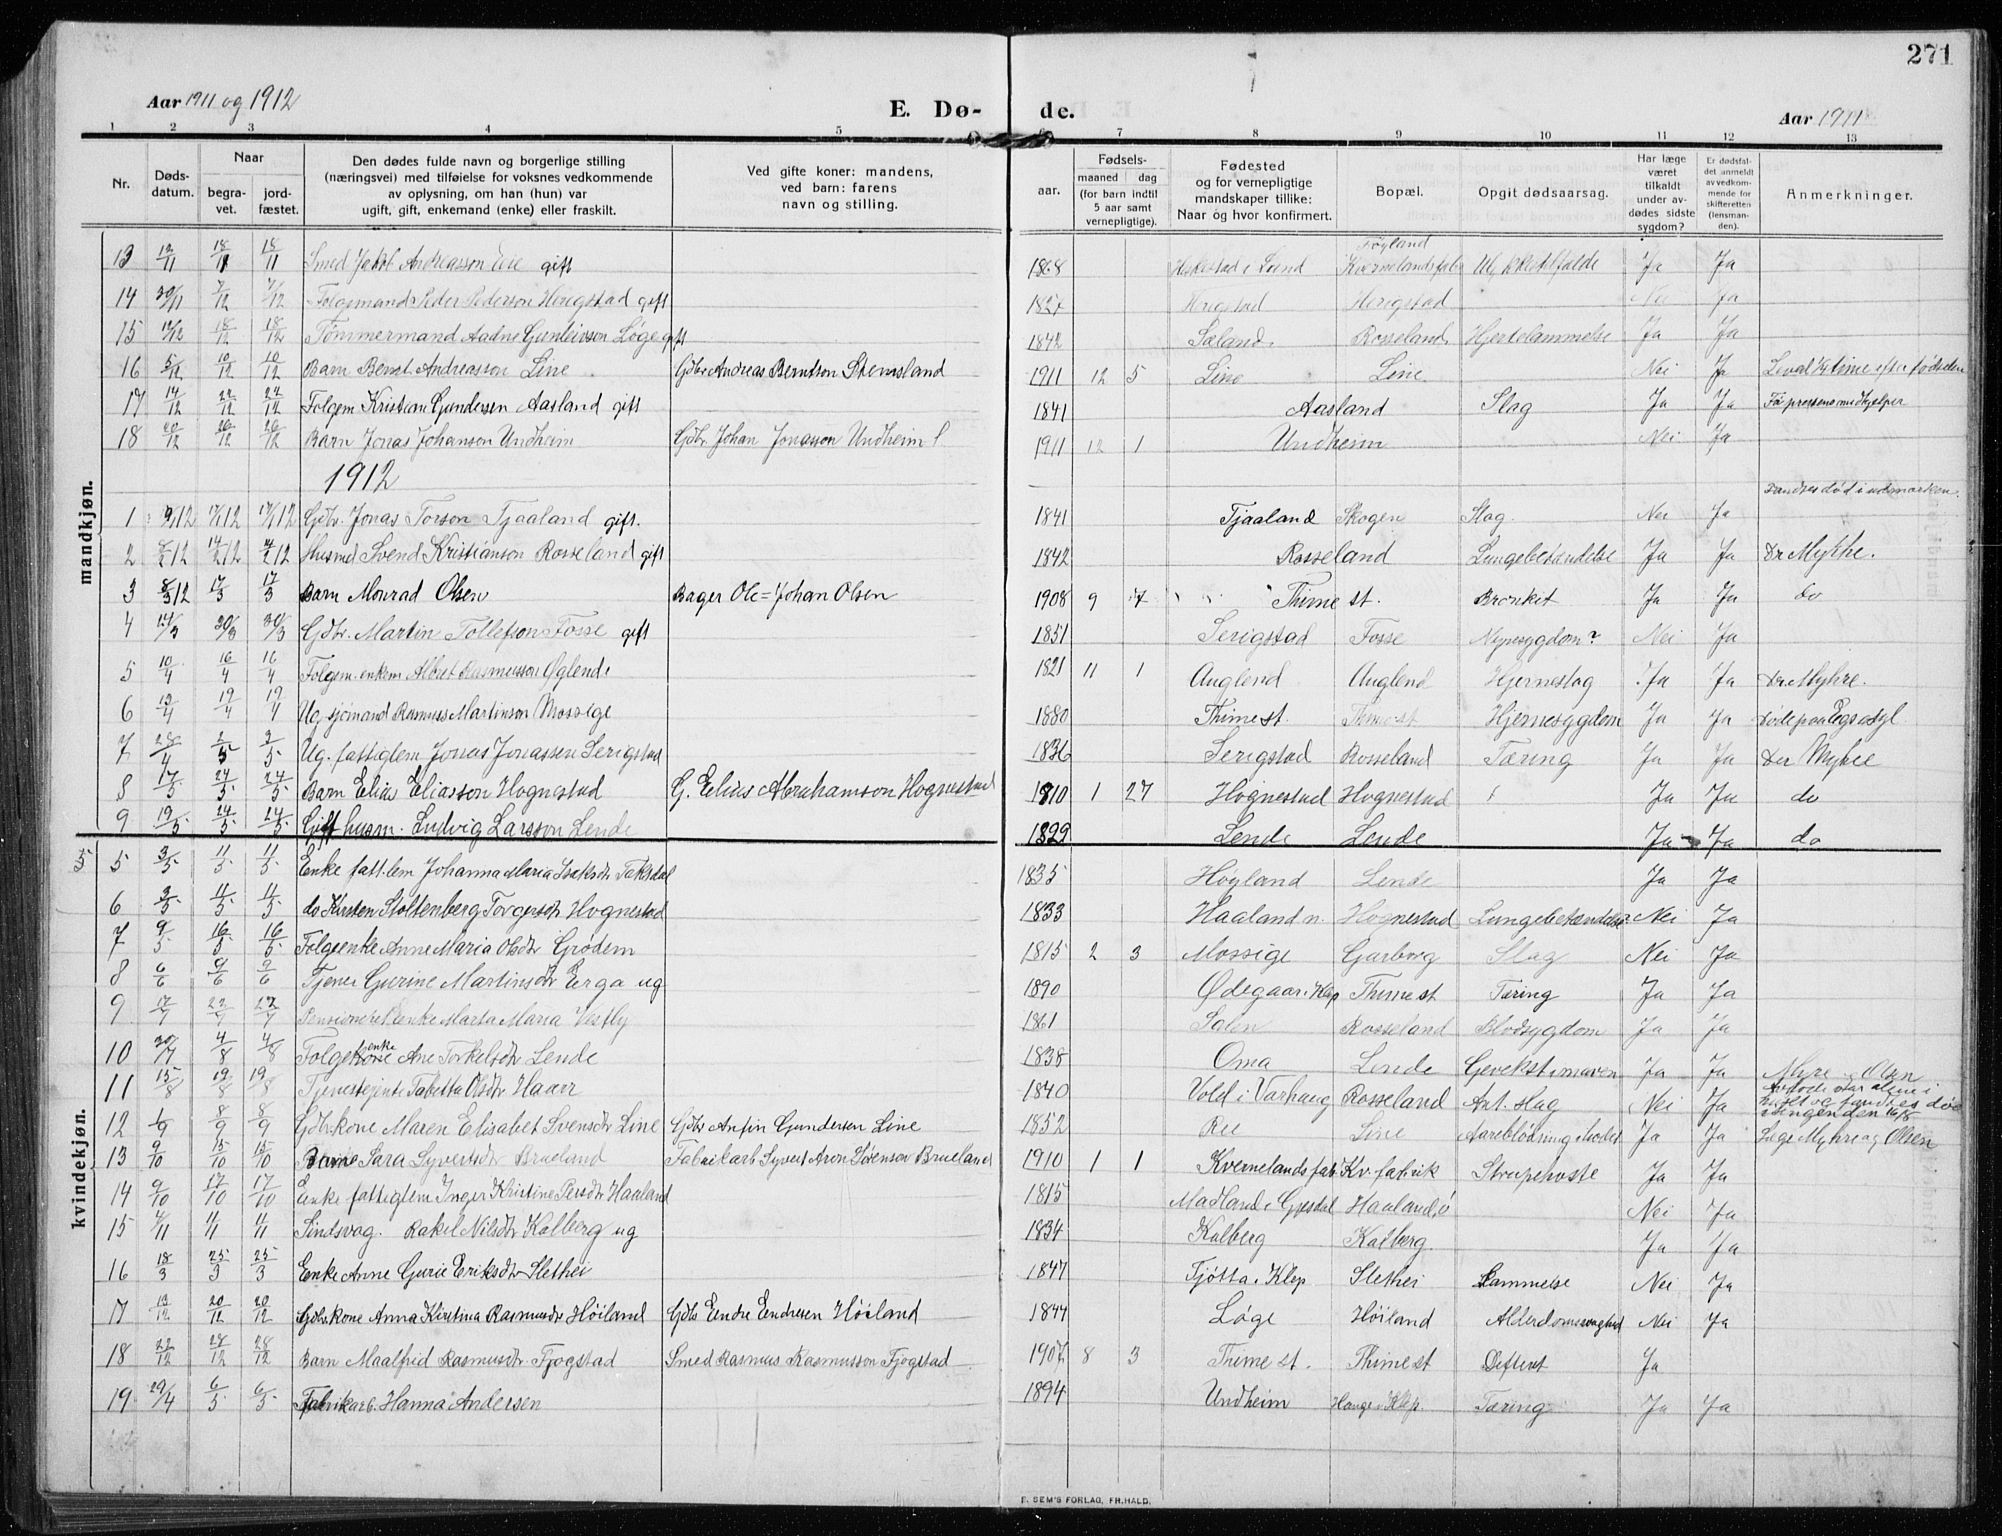 271
Aar 1911 og 1912
E. Dø-
de.
Aar 1911
1 2 3 4 5 6 7 8 9 10 11 12 13
Nr. Dødsdatum. Naar begravet. jordfæstet. Den dødes fulde navn og borgerlige stilling (næringsvei) med tilføielse for voksnes vedkommende av oplysning, om han (hun) var ugift, gift, enkemand (enke) eller fraskilt. Ved gifte koner: mandens, ved barn: farens navn og stilling. aar. Fødsels- maaned dag (for barn indtil 5 aar samt vernepligtige). Fødested og for vernepligtige mandskaper tillike: Naar og hvor konfirmert. Bopæl. Opgit dødsaarsag. Har læge været tilkaldt under avdødes sidste sygdom? Er dødsfaldet anmeldt av vedkommende for skifteretten (lensmanden). Anmerkninger.
mandkjøn.
13 18/11 18/11 Smed Jakob Andreasson Eie gift 1868 Heskestad i Lund Kvernelandsfabr Ja Ja
14 30/11 7/12 7/12 Folgemand Peder Pederson Herigstad gift 1827 Herigstad Herigstad Nei Ja
15 18/12 18/12 Tømmermand Aadne Gunleivson Løge gift 1842 Sæland. Rosseland Hjertelammelse Ja Ja
16 5/12 10/12 10/12 Barn Bernt Andreasson Line Gdbr Andreas Berntson Stemsland 1911 12 5 Line Line Nei Ja Levde time efter fødselen
17 14/12 22/12 22/12 Folgem Kristian Gundersen Aasland gift 1841 Aasland Slag Ja Ja
18 20/12 26/12 26/12 Barn Jonas Johanson Undheim Gdbr. Johan Jonasson Undheim 1911 12 1 Undheim Nei Ja
1912
1 Gdbr. Jonas Torson Tjaaland gift. 1841 Tjaaland Skogen Slag. Nei Ja Fandtes død i udmarken.
2 Husmd Svend Kristianson Rosseland gift 1842 Rosseland Lungebetændelse Ja Ja Dr Myhre.
3 8/3 12 17/3 17/3 Barn Monrad Olsen Bager Ole=Johan Olsen 1908 9 7 Thime st. Bronkit Ja Ja do
4 14/3 20/3 20/3 Gdbr. Martin Tollefson Fosse gift 1851 Serigstad Fosse Nyresygdom? Nei Ja
5 10/4 16/4 16/4 Folgem. enkem Albret Rasmusson Øglend 1821 11 1 Auglend Auglend Hjerneslag Ja Ja Dr Myhre.
6 13/4 19/4 19/4 Ug. sjømand Rasmus Martinson Mossige 1880 Thime st. Thime st Hjernesygdom Ja Ja Døde paa Egs asyl.
7 28/4 2/5 2/5 Ug. fattiglem Jonas Jonassen Serigstad 1836 Serigstad Rosseland Tæring Ja Ja Der Myhre
8 17/5 24/5 24/5 Barn Elias Eliasson Hognestad G. Elius Abrahamson Hognestad 1910 1 27 Hognestad Hognestad Ja Ja do
9 19/5 24/5 24/5 Gift husm. Ludvig Larsson Lende 1829 Lende Lende Ja Ja do
kvindekjøn.
5 5 3/5 11/5 11/5 Enke fatt.lem Johanna Maria Isaksdtr Taksdal 1835 Høyland Lende Ja Ja
6 3/5 11/5 11/5 do Kirsten Stoltenberg Torgersdtr Hognestad 1833 Haaland n. Hognestad Lungebetændelse Nei Ja
7 9/5 16/5 16/5 Folgeenke Anne Maria Olsdtr Grødem 1815 2 3 Mossige Garborg Slag Nei Ja
8 6/6 9/6 9/6 Tjener Gurine Martinsdtr Erga ug 1890 Ødegaar i Klep Thime st Tæring Ja Ja
9 17/7 22/7 22/7 Pensioneret enke Marta Maria Vestly 1861 Salen Rosseland Blodsygdom Ja Ja
10 30/7 4/8 4/8 Folgekone enke Ane Torkelsdtr Lende 1838 Oma Lende Gevekst i maven Ja Ja Myre Olsen
11 15/8 19/8 19/8 Tjenestejente Tabitta Olsdtr Haarr 1840 Vold i Varhaug Rosseland Ant. slag Nei Ja Avdøde var alene i huset og fandtes død i sengen den 16/8
12 1/9 8/9 8/9 Gdbr.kone Maren Elisabet Svensdtr Line Gdbr Anfin Gundersen Line 1852 Ree Line Aareblødning i hodet Ja Ja Læge Myhre og Olsen
13 9/10 15/10 15/10 Barn Sara Syvertsdtr Brueland Fabrikarb Syvert Aron Sørenson Brueland 1910 1 1 Kvernelands fabr Kv. fabrik Strupehoste Ja Ja
14 9/10 17/10 17/10 Enke fattiglem Inger Kristine Persdtr Haaland 1815 Madland i Gjesdal Haaland, ø Nei Ja
15 4/11 11/11 11/11 Sindsvag. Rakel Nilsdtr Kalberg ug 1834 Kalberg Kalberg Ja Ja
16 18/3 25/3 25/3 Enke Anne Gurie Eriksdtr Slethei 1847 Tjøtta i Klep Slethei Lammelse Nei Ja
17 13/12 20/12 20/12 Gdbr.kone Anna Kirstina Rasmusdtr Høiland Gdbr Endre Endresen Høiland 1844 Løge Høiland Alderdomssvaghed Nei Ja
18 22/12 28/12 28/12 Barn Maalfrid Rasmusdtr Fjogstad Smed Rasmus Rasmusson Fjogstad 1907 8 3 Thime st. Thime st Difterit Ja
19 29/4 6/5 6/5 Fabrikarb. Hanna Andersen 1894 Undheim Hauge i Klep. Tæring Ja Ja
E. SEM'S FORLAG, FR.HALD.